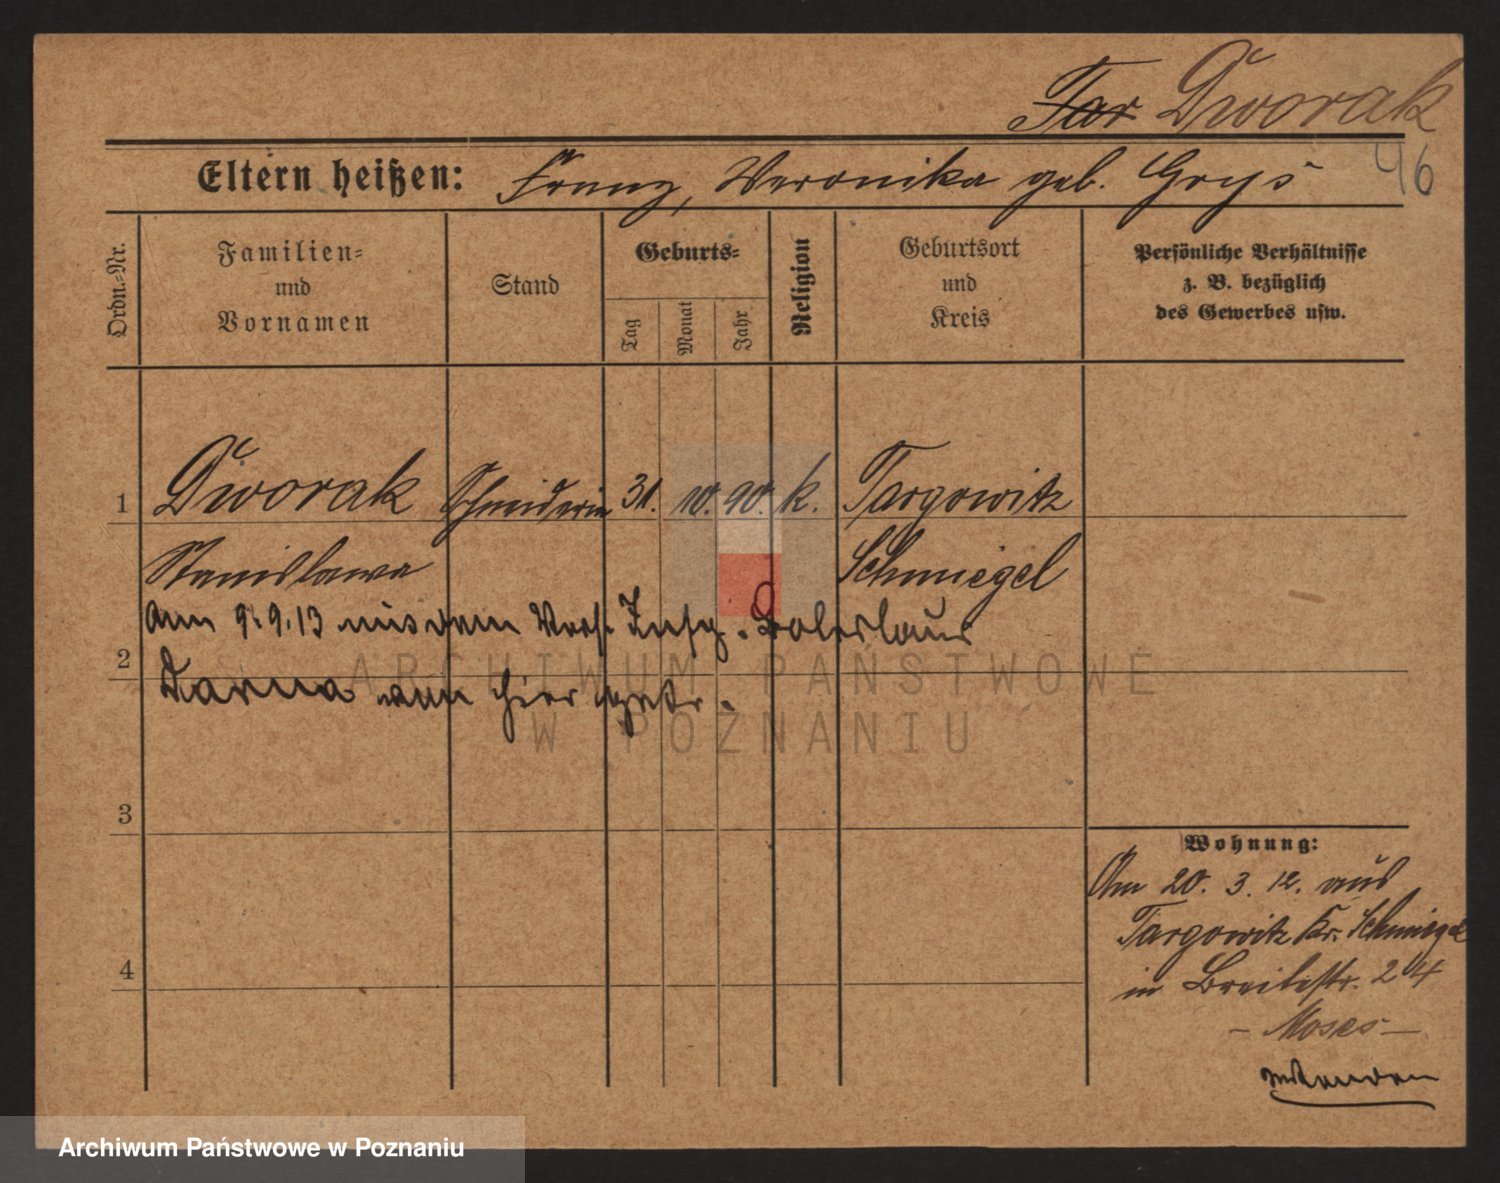 Tar Dworak
46
Eltern heißen: Franz, Veronika geb. Grys
Ordn.-Nr.
Familien-
und
Vornamen
Stand
Geburts-
Tag
Monat
Jahr
Religion
Geburtsort
und
Kreis
Persönliche Verhältnisse
z. B. bezüglich
des Gewerbes usw.
1 Dworak Schneiderin 31. 10. 90. k. Targowitz
Stanislawa Schmiegel
am 9.9.13 mit dem Vers. Insp. Boleslaus
2
von hier getr.
3
4
Wohnung:
Am 20. 3. 12. aus
Targowitz Kr. Schmiegel
in Breitestr. 24
- Moses -
ARCHIWUM PAŃSTWOWE
W POZNANIU
Archiwum Państwowe w Poznaniu